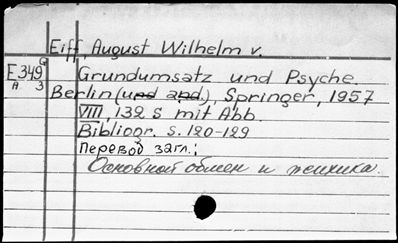 Eiff August Wilhelm v.
E349 Grundumsatz und Psyche.
A 3 Berlin (und and.), Springer, 1957
VIII, 132 S mit Abb.
Bibliogr. S. 120-129
Перевод загл.:
Основной обмен и психика.